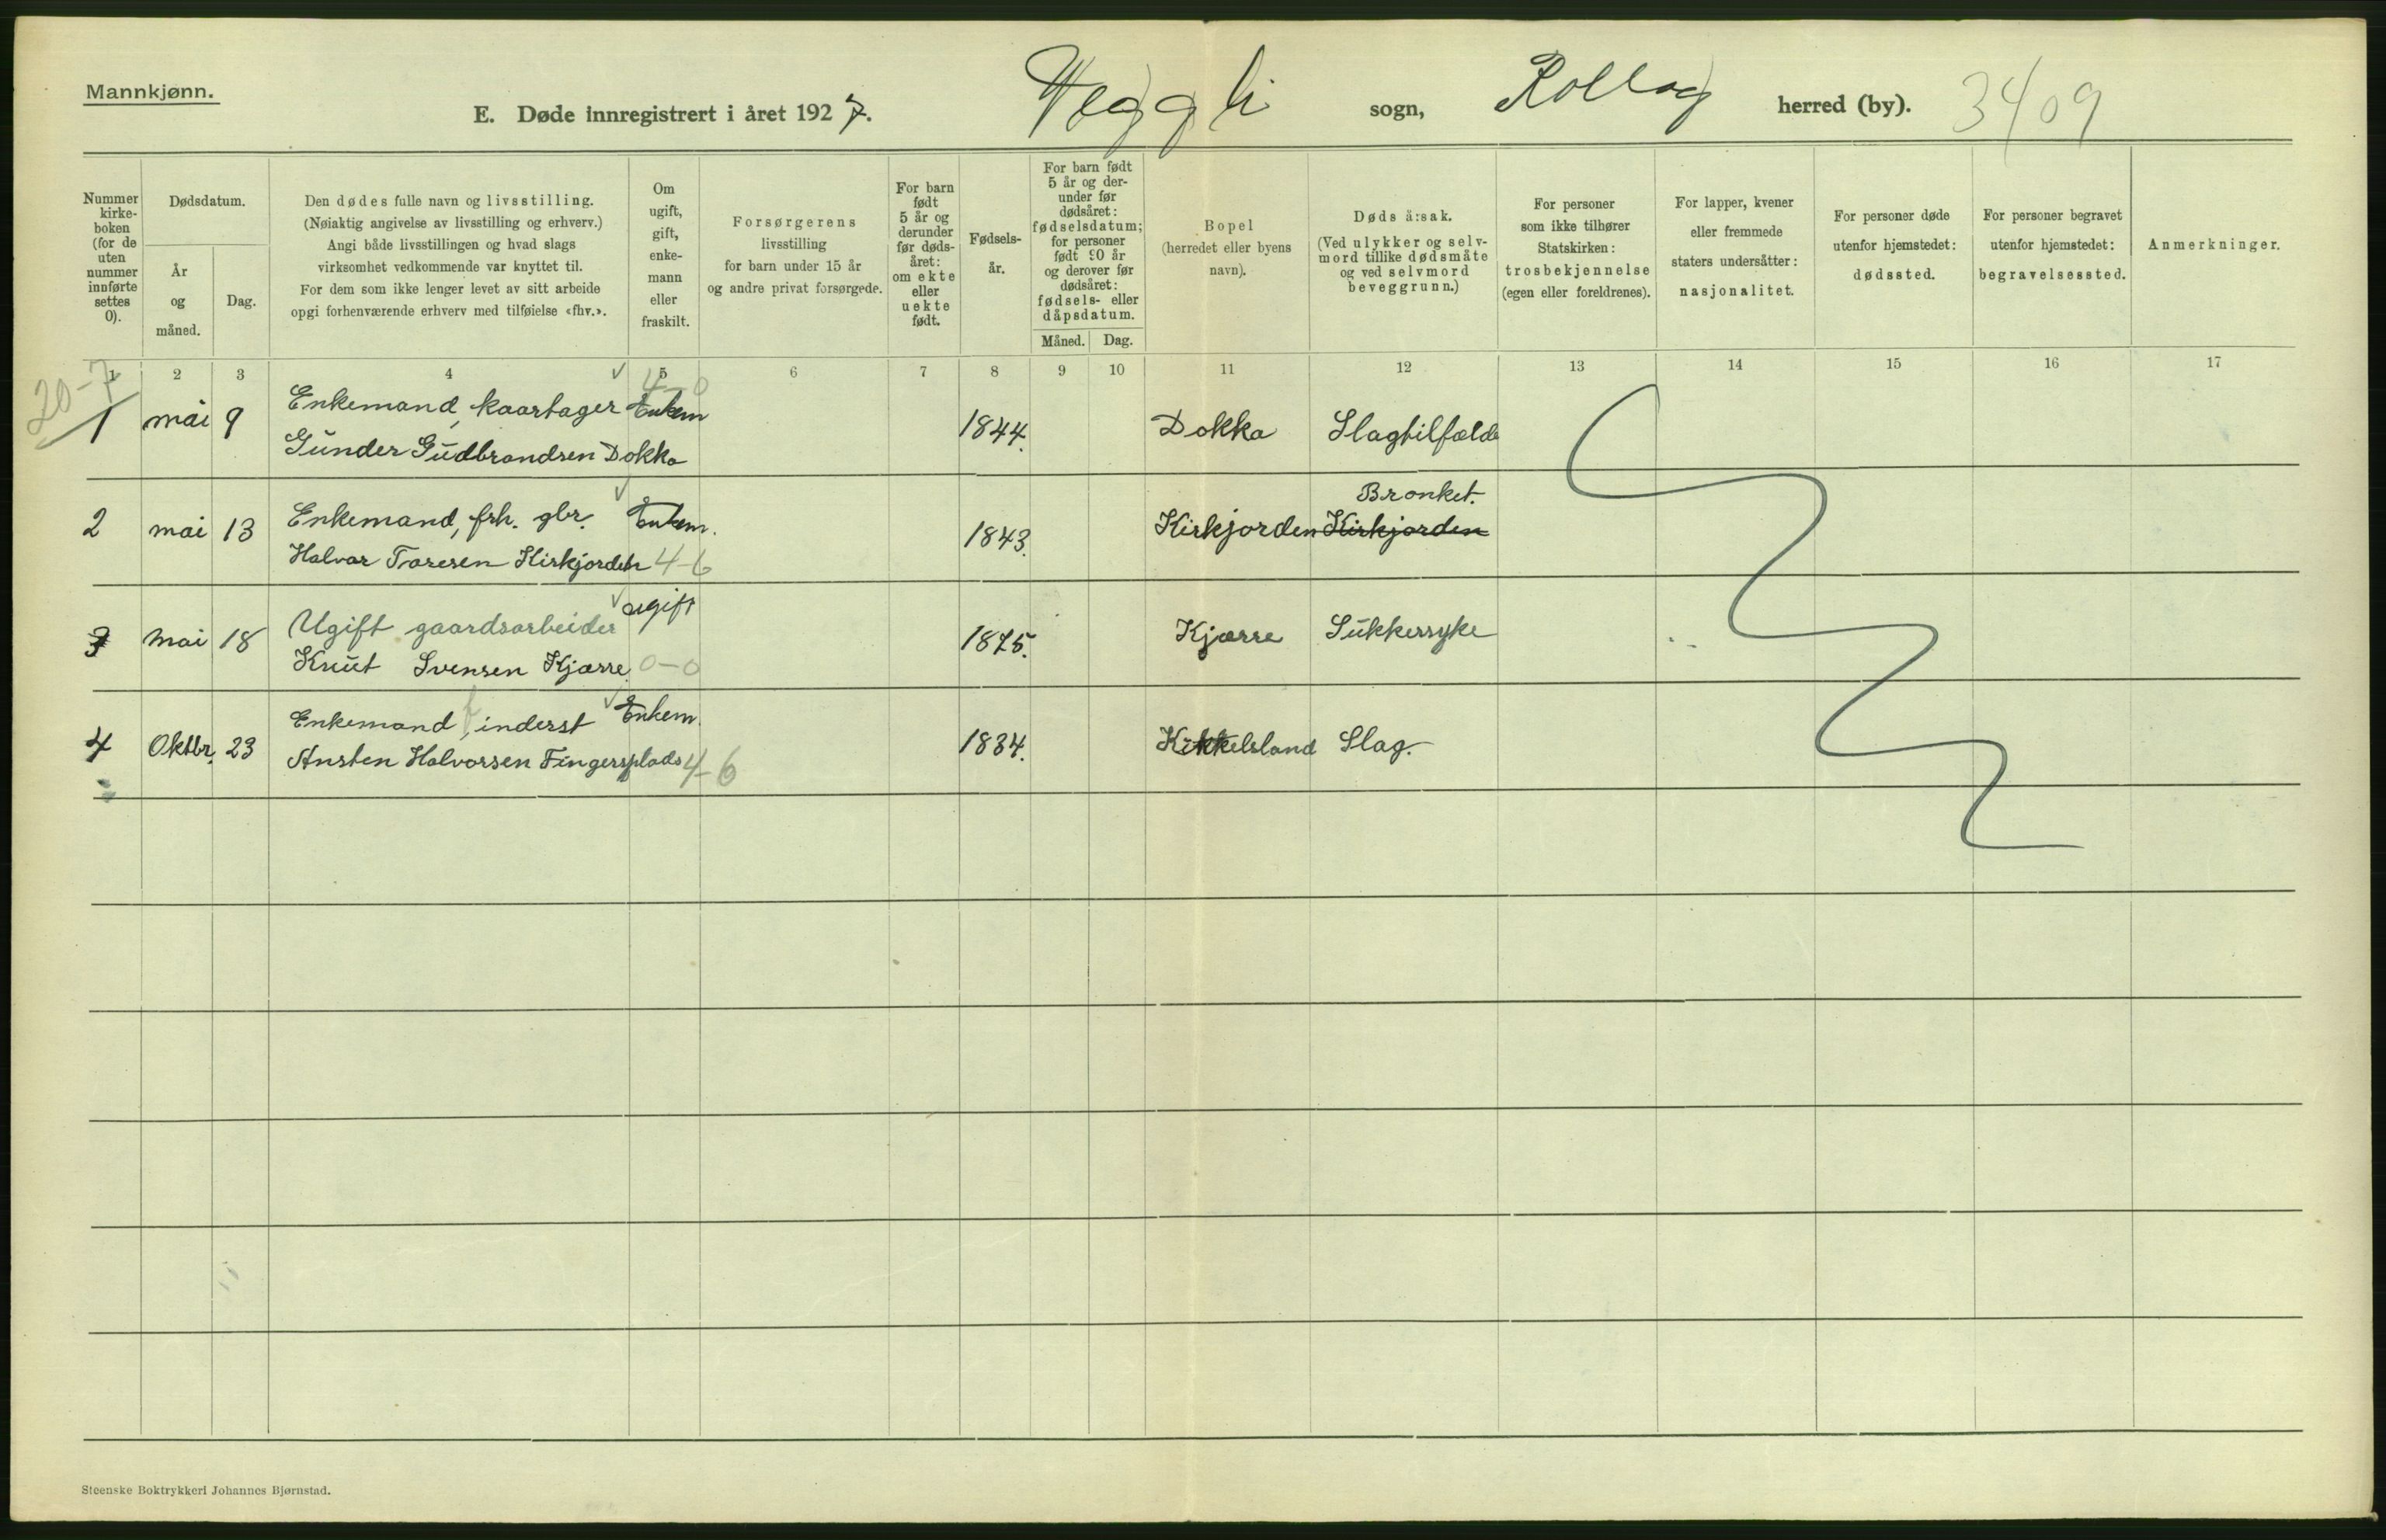 Mannkjønn.
E. Døde innregistrert i året 1927. Veggli sogn, Rollag herred (by). 34/09
Nummer kirke-boken (for de uten nummer innførte settes 0).
Dødsdatum.
År og måned.
Dag.
Den dødes fulle navn og livsstilling.
(Nøiaktig angivelse av livsstilling og erhverv.)
Angi både livsstillingen og hvad slags
virksomhet vedkommende var knyttet til.
For dem som ikke lenger levet av sitt arbeide
opgi forhenværende erhverv med tilføielse «fhv.».
Om ugift, gift, enke-mann eller fraskilt.
Forsørgerens
livsstilling
for barn under 15 år
og andre privat forsørgede.
For barn født 5 år og derunder før døds-året: om ekte eller uekte født.
Fødsels-år.
For barn født 5 år og der-under før dødsåret: fødselsdatum; for personer født 90 år og derover før dødsåret: fødsels- eller dåpsdatum.
Måned. Dag.
Bopel
(herredet eller byens
navn).
Døds å:sak.
(Ved ulykker og selv-
mord tillike dødsmåte
og ved selvmord
beveggrunn.)
For personer
som ikke tilhører
Statskirken:
trosbekjennelse
(egen eller foreldrenes).
For lapper, kvener
eller fremmede
staters undersåtter:
nasjonalitet.
For personer døde
utenfor hjemstedet:
dødssted.
For personer begravet
utenfor hjemstedet:
begravelsessted.
Anmerkninger.
1 2 3 4 5 6 7 8 9 10 11 12 13 14 15 16 17
20-7
4-0
1 mai 9 Enkemand, kaartager Enkem 1844. Dokka Slagtilfælde
Gunder Gudbrandsen Dokka
Bronkit.
2 mai 13 Enkemand, frh. gbr. Enkem. 1843. Kirkjorden Kirkjorden
Halvor Toresen Kirkjorden 4-6
3 mai 18 Ugift gaardsarbeider ugift 1875. Kjærre Sukkersyke
Knut Svensen Kjærre 0-0
4 Oktbr. 23 Enkemand, f inderst Enkem. 1834. Kikkelsland Slag.
Ansten Halvorsen Fingersplads 4-6
Steenske Boktrykkeri Johannes Bjørnstad.